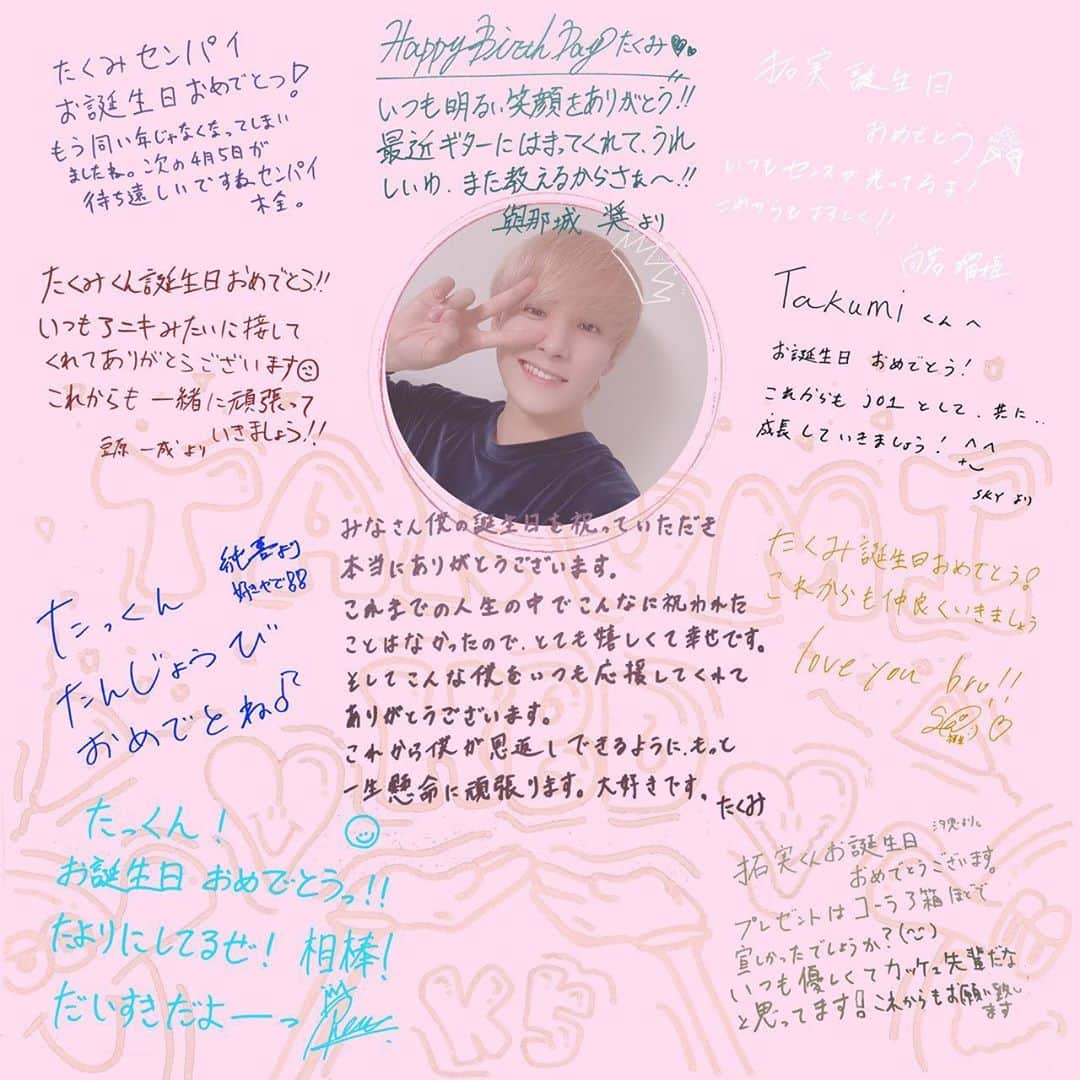 たくみセンパイ
お誕生日おめでとっ！
もう同い年じゃなくなってしまい
ましたね。次の4月5日が
待ち遠しいですねセンパイ
木全。
Happy Birth Day たくみ
いつも明るい笑顔をありがとう!!
最近ギターにはまってくれて、うれ
しいわ、また教えるからさぁ〜!!
與那城 奨 より
拓実 誕生日
おめでとう
いつもセンスが光ってるよ！
これからもよろしく!!
たくみくん誕生日おめでとう!!
いつもアニキみたいに接して
くれてありがとうございます
これからも一緒に頑張って
いきましょう!!
豆原 一成 より
Takumi くんへ
お誕生日 おめでとう！
これからも JO1 として、共に..
成長していきましょう！
SKY より
純喜より
好きやで
たっくん
たんじょうび
おめでとね♪
みなさん僕の誕生日を祝っていただき
本当にありがとうございます。
これまでの人生の中でこんなに祝われた
ことはなかったので、とても嬉しくて幸せです。
そしてこんな僕をいつも応援してくれて
ありがとうございます。
これから僕が恩返しできるように、もっと
一生懸命に頑張ります。大好きです。
たくみ
たくみ誕生日おめでとう！
これからも仲良くいきましょう
love you bro!!
たっくん！
お誕生日 おめでとうっ!!
たよりにしてるぜ！ 相棒！
だいすきだよーっ
Ren
汐恩より。
拓実くんお誕生日
おめでとうございます。
プレゼントはコーラ3箱ほどで
宜しかったでしょうか？
いつも優しくてカッケェ先輩だな
と思ってます！これからもお願い致し
ます
TAKUMI
HBD